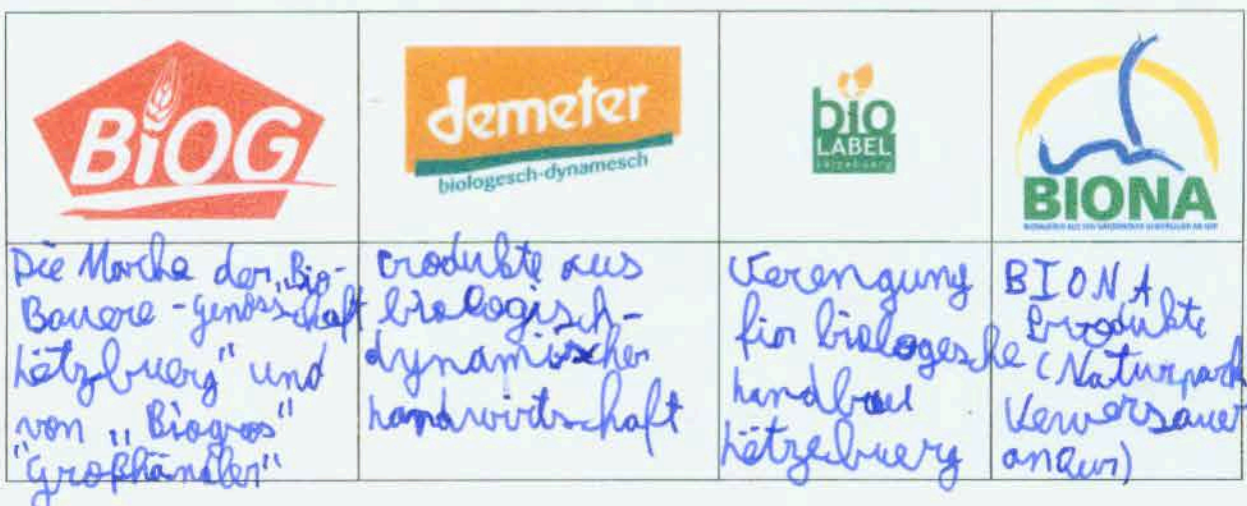 BiOG
demeter
biologesch-dynamesch
bio
LABEL
lëtzebuerg
BIONA
Die Marke der „Bio-
Bauere-Genossschaft
Lëtzbuerg" und
von „Biogros"
"Großhändler"
Produkte aus
biologisch-
dynamischer
Landwirtschaft
Verengung
fir biologesche
Landbau
Lëtzebuerg
BIONA
Produkte
(Naturpark